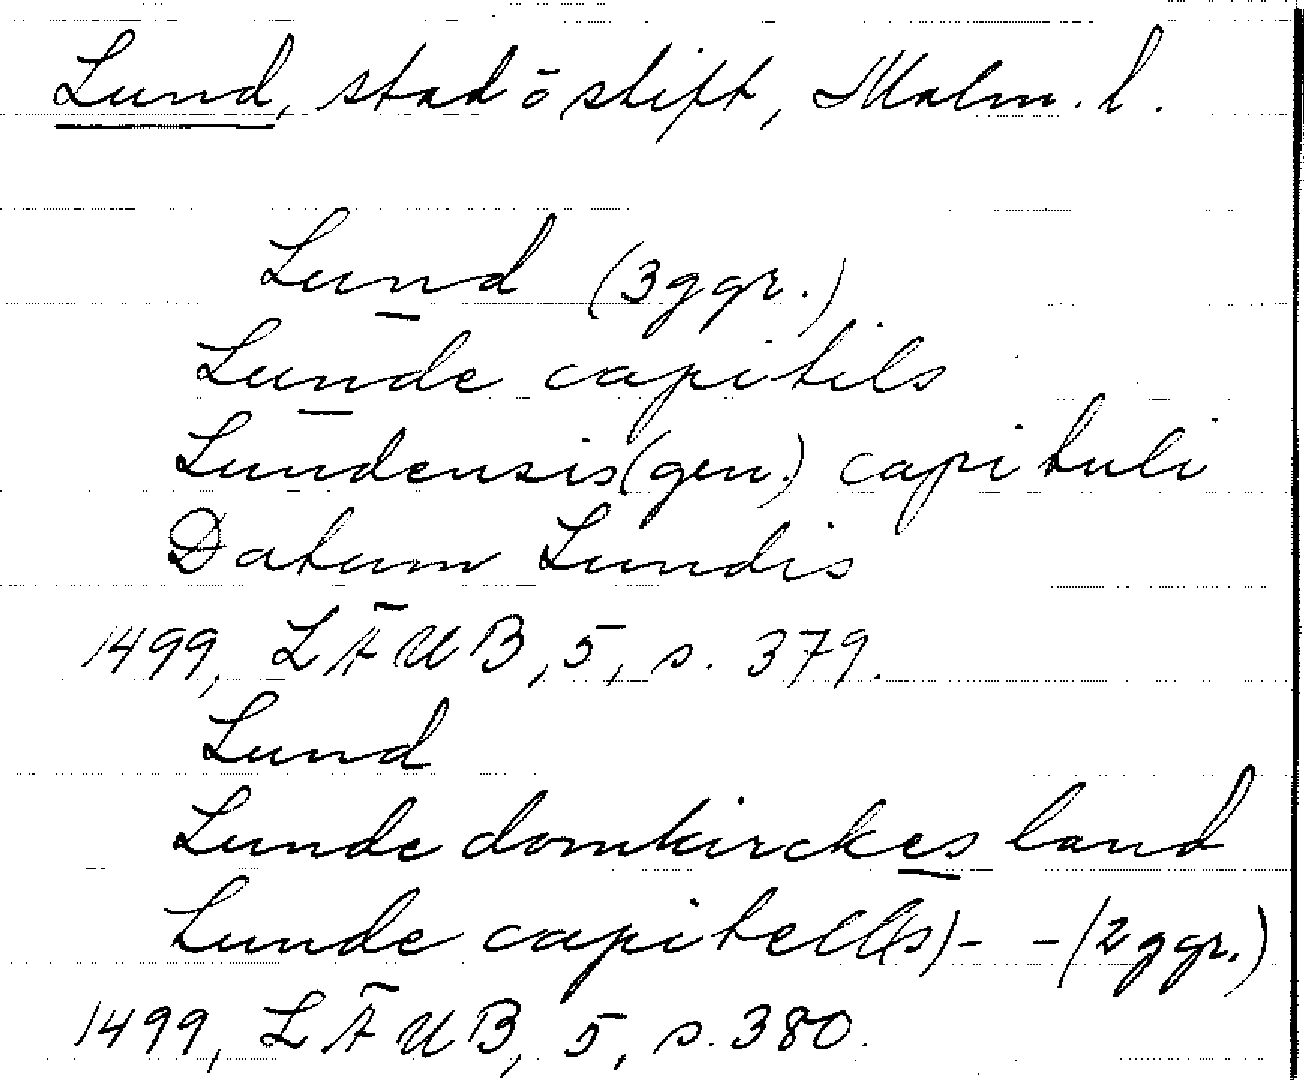 Lund, stad ō stift, Malm. l.
Lund (3 ggr.)
Lunde capitils
Lundensis (gen.) capituli
Datum Lundis
1499, LÄUB, 5, s. 379.
Lund
Lunde domkirckes land
Lunde capitell(s) - - (2 ggr.)
1499, LÄUB, 5, s. 380.